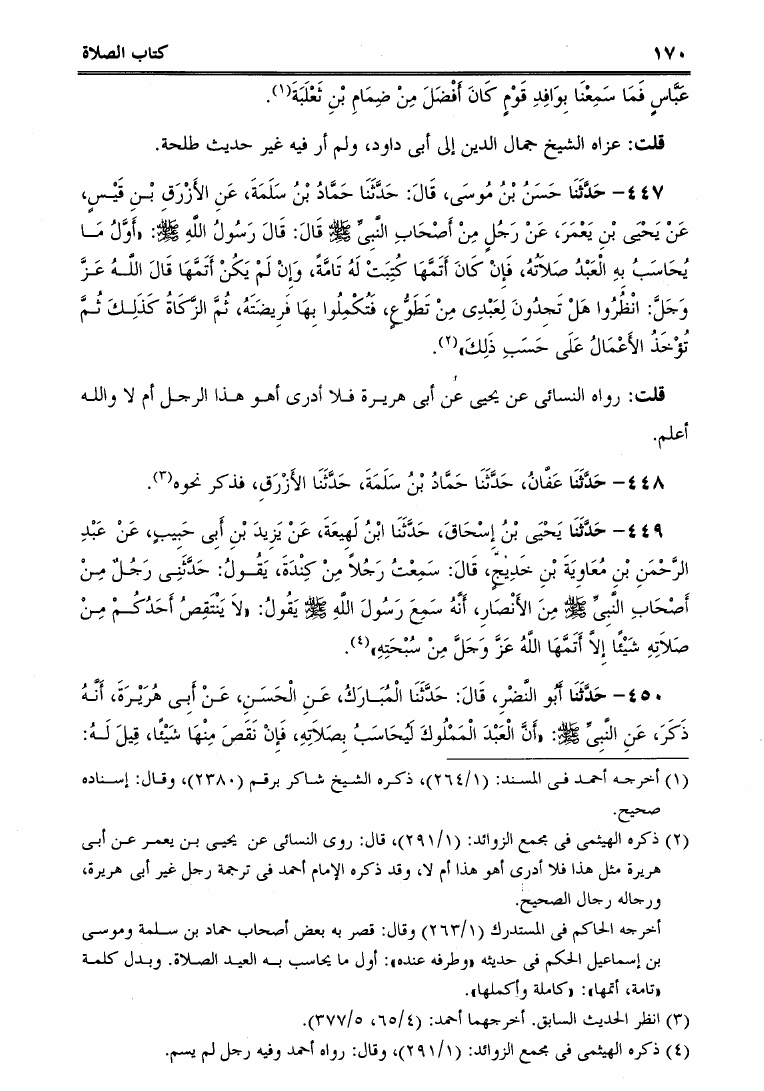 ١٧٠ كتاب الصلاة
عَبَّاسٍ فَمَا سَمِعْنَا بِوَافِدِ قَوْمٍ كَانَ أَفْضَلَ مِنْ ضِمَامِ بْنِ ثَعْلَبَةَ(١).
قلت: عزاه الشيخ جمال الدين إلى أبى داود، ولم أر فيه غير حديث طلحة.
٤٤٧- حَدَّثَنَا حَسَنُ بْنُ مُوسَى، قَالَ: حَدَّثَنَا حَمَّادُ بْنُ سَلَمَةَ، عَنِ الأَزْرَقِ بْنِ قَيْسٍ،
عَنْ يَحْيَى بْنِ يَعْمَرَ، عَنْ رَجُلٍ مِنْ أَصْحَابِ النَّبِيِّ ﷺ قَالَ: قَالَ رَسُولُ اللَّهِ ﷺ: «أَوَّلُ مَا
يُحَاسَبُ بِهِ الْعَبْدُ صَلاَتُهُ، فَإِنْ كَانَ أَتَمَّهَا كُتِبَتْ لَهُ تَامَّةً، وَإِنْ لَمْ يَكُنْ أَتَمَّهَا قَالَ اللَّهُ عَزَّ
وَجَلَّ: انْظُرُوا هَلْ تَجِدُونَ لِعَبْدِى مِنْ تَطَوُّعٍ، فَتُكْمِلُوا بِهَا فَرِيضَتَهُ، ثُمَّ الزَّكَاةُ كَذَلِكَ ثُمَّ
تُؤْخَذُ الأَعْمَالُ عَلَى حَسَبِ ذَلِكَ»(٢).
قلت: رواه النسائى عن يحيى عن أبى هريرة فلا أدرى أهو هذا الرجل أم لا والله
أعلم.
٤٤٨- حَدَّثَنَا عَفَّانُ، حَدَّثَنَا حَمَّادُ بْنُ سَلَمَةَ، حَدَّثَنَا الأَزْرَقُ، فذكر نحوه(٣).
٤٤٩- حَدَّثَنَا يَحْيَى بْنُ إِسْحَاقَ، حَدَّثَنَا ابْنُ لَهِيعَةَ، عَنْ يَزِيدَ بْنِ أَبِى حَبِيبٍ، عَنْ عَبْدِ
الرَّحْمَنِ بْنِ مُعَاوِيَةَ بْنِ خَدِيْجٍ، قَالَ: سَمِعْتُ رَجُلاً مِنْ كِنْدَةَ، يَقُولُ: حَدَّثَنِى رَجُلٌ مِنْ
أَصْحَابِ النَّبِيِّ ﷺ مِنَ الأَنْصَارِ، أَنَّهُ سَمِعَ رَسُولَ اللَّهِ ﷺ يَقُولُ: «لاَ يَنْتَقِصُ أَحَدُكُمْ مِنْ
صَلاَتِهِ شَيْئًا إِلاَّ أَتَمَّهَا اللَّهُ عَزَّ وَجَلَّ مِنْ سُبْحَتِهِ»(٤).
٤٥٠- حَدَّثَنَا أَبُو النَّضْرِ، قَالَ: حَدَّثَنَا الْمُبَارَكُ، عَنِ الْحَسَنِ، عَنْ أَبِى هُرَيْرَةَ، أَنَّهُ
ذَكَرَ، عَنِ النَّبِيِّ ﷺ: «أَنَّ الْعَبْدَ الْمَمْلُوكَ لَيُحَاسَبُ بِصَلاَتِهِ، فَإِنْ نَقَصَ مِنْهَا شَيْئًا، قِيلَ لَهُ:
(١) أخرجه أحمد فى المسند: (٢٦٤/١)، ذكره الشيخ شاكر برقم (٢٣٨٠)، وقال: إسناده
صحيح.
(٢) ذكره الهيثمى فى مجمع الزوائد: (٢٩١/١)، قال: روى النسائى عن يحيى بن يعمر عن أبى
هريرة مثل هذا فلا أدرى أهو هذا أم لا، وقد ذكره الإمام أحمد فى ترجمة رجل غير أبى هريرة،
ورجاله رجال الصحيح.
أخرجه الحاكم فى المستدرك (٢٦٣/١) وقال: قصر به بعض أصحاب حماد بن سلمة وموسى
بن إسماعيل الحكم فى حديثه «وطرفه عنده»: أول ما يحاسب به العيد الصلاة. وبدل كلمة
«تامة، أتمها»: «كاملة وأكملها».
(٣) انظر الحديث السابق. أخرجهما أحمد: (٦٥/٤، ٣٧٧/٥).
(٤) ذكره الهيثمى فى مجمع الزوائد: (٢٩١/١)، وقال: رواه أحمد وفيه رجل لم يسم.